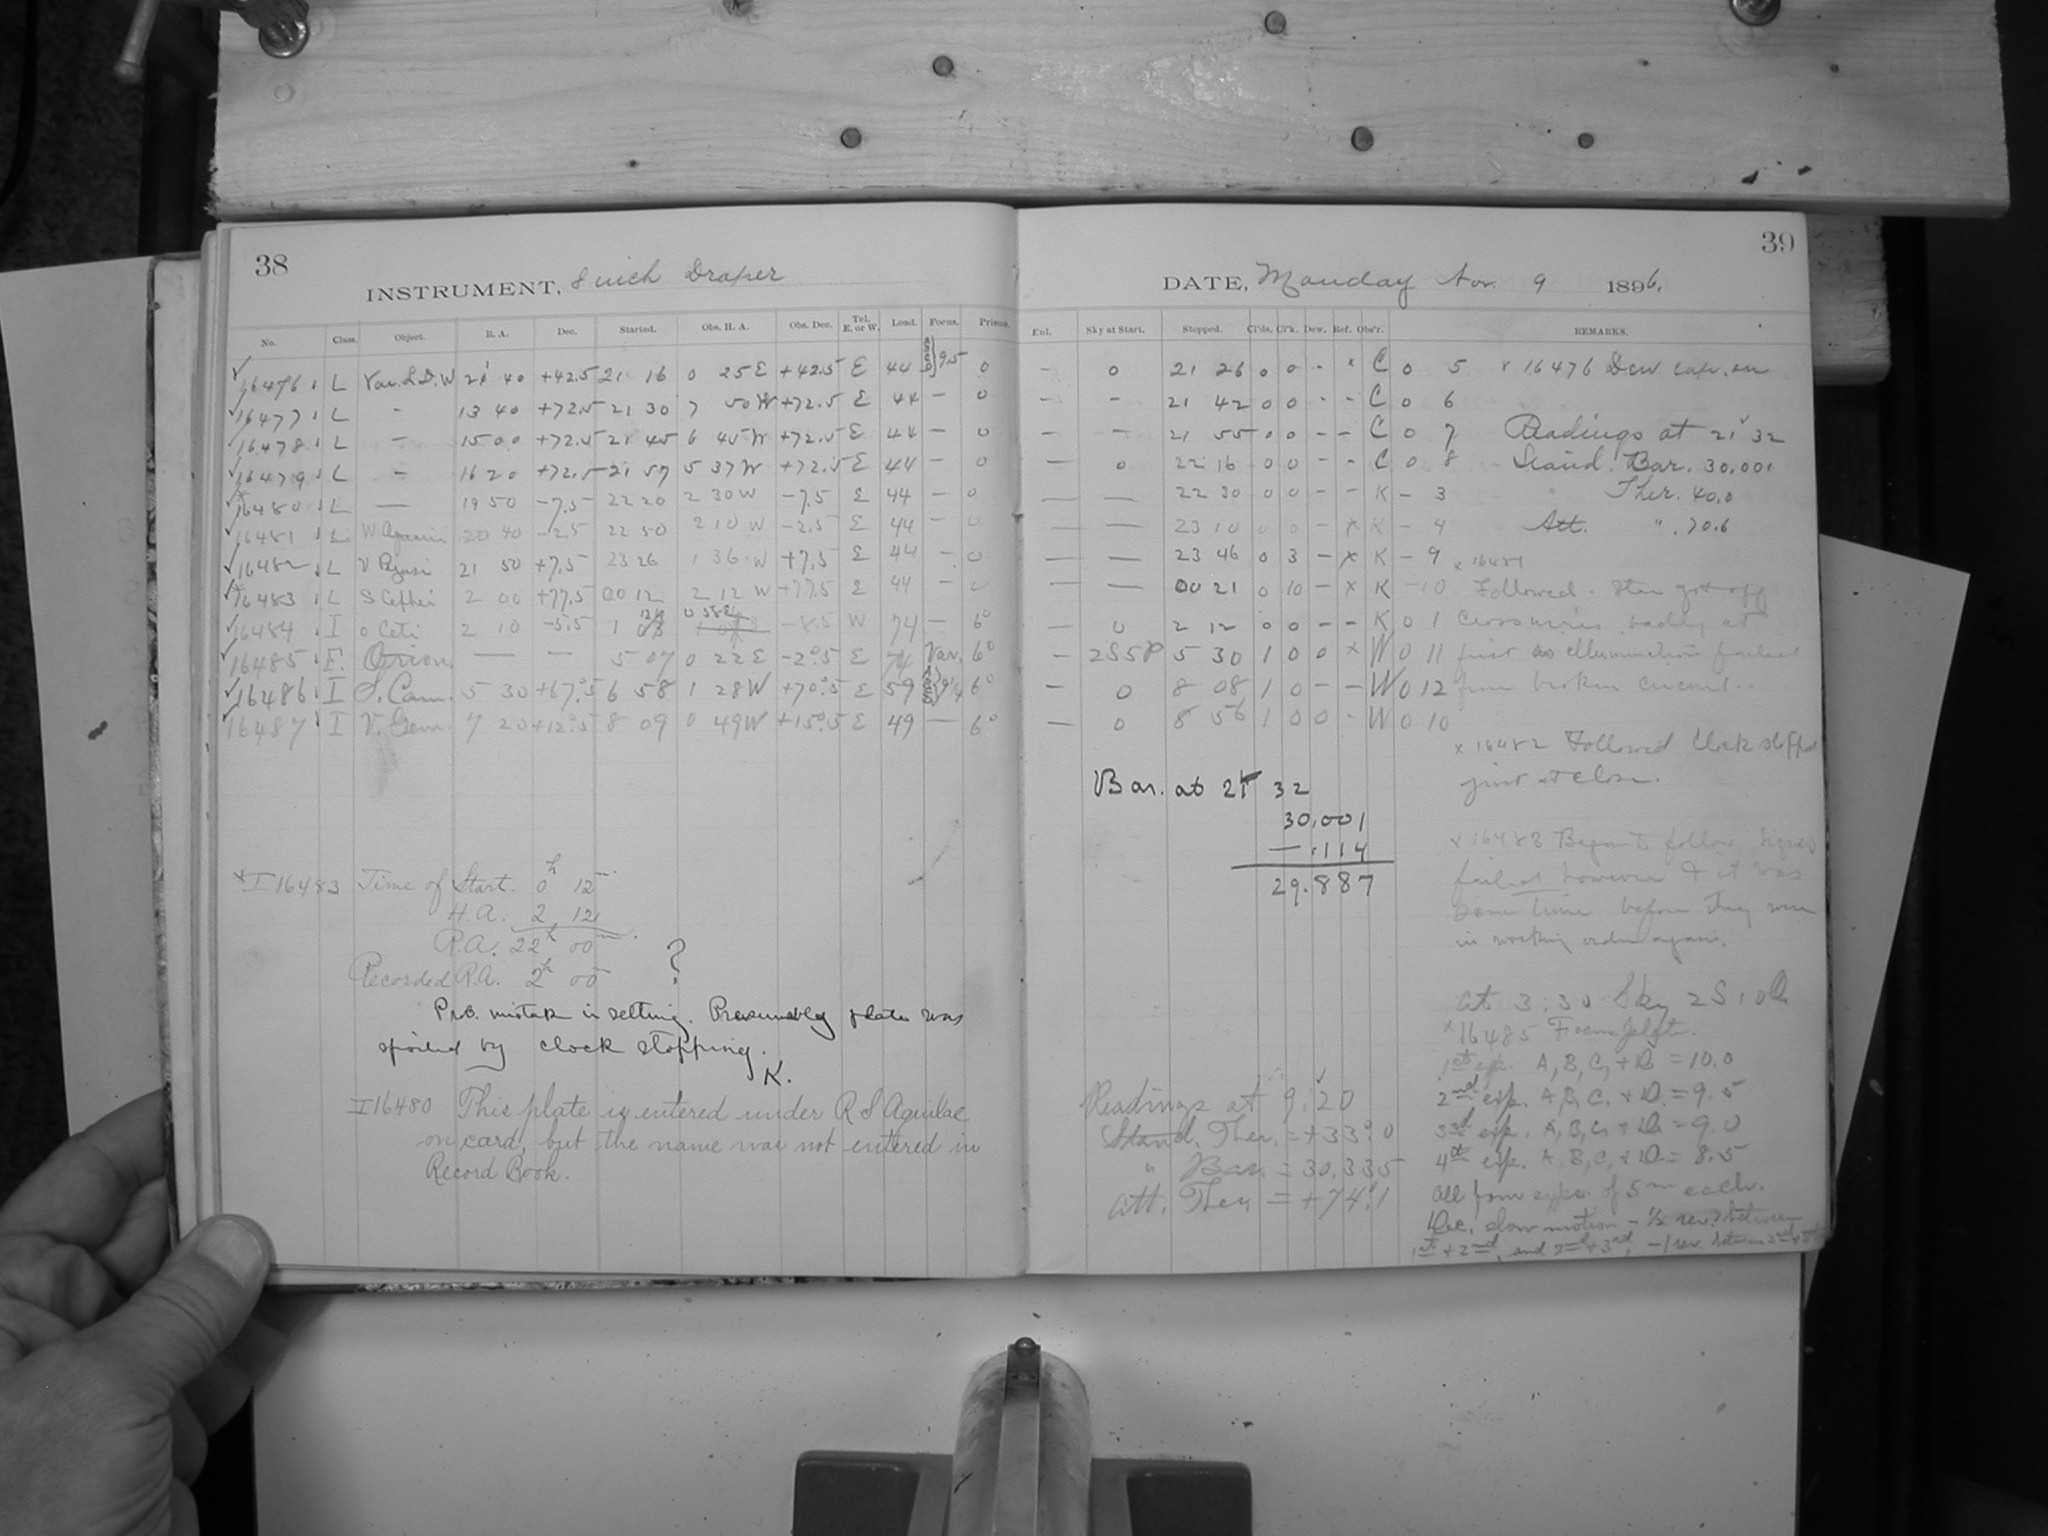 38
INSTRUMENT, 8 inch Draper
No. Class. Object. R. A. Dec. Started. Obs. H. A. Obs. Dec. Tel. E. or W. Load. Focus. Prisms.
16476. L Var. L.D.W 21 40 +42.5 21 16 0 25 E +42.5 E 44 9.5 0
16477. L - 13 40 +72.5 21 30 7 50 W +72.5 E 44 - 0
16478. L - 15 00 +72.5 21 45 6 45 W +72.5 E 44 - 0
16479. L - 16 20 +72.5 21 57 5 37 W +72.5 E 44 - 0
16480. L — 19 50 -7.5 22 20 2 30 W -7.5 E 44 - 0
16481. L W Aquarii 20 40 -2.5 22 50 2 10 W -2.5 E 44 - 0
16482. L V Pegasi 21 50 +7.5 23 26 1 36 W +7.5 E 44 - 0
16483. L S Cephei 2 00 +77.5 00 12 2 12 W +77.5 E 44 - 0
16484. I o Ceti 2 10 -5.5 1 0 58 E -8.5 W 74 - 6°
16485. F. Orion — — 5 07 0 22 E -2°.5 E 74 Var. 6°
16486. I S. Cam. 5 30 +67°.5 6 58 1 28 W +70°.5 E 59 9¼ 6°
16487. I V. Gem. 7 20 +12°.5 8 09 0 49 W +15°.5 E 49 — 6°
* I 16483 Time of Start. 0h 12m.
H.A. 2 12
R.A. 22h 00m.
Recorded R.A. 2h 00 ?
Prob. mistake in setting. Presumably plate was
spoiled by clock stopping.
K.
I 16480 This plate is entered under R S Aquilae
on card, but the name was not entered in
Record Book.
39
DATE, Monday Nov. 9 1896.
Enl. Sky at Start. Stopped. Cl'ds. Cl'k. Dew. Ref. Obs'r. REMARKS.
- 0 21 26 0 0 - x C 0 5 x 16476 Dew cap. on
- - 21 42 0 0 - - C 0 6
- - 21 55 0 0 - - C 0 7 Readings at 21 32
- 0 22 16 0 0 - - C 0 8 Stand. Bar. 30.001
— — 22 30 0 0 - - K - 3 " Ther. 40.0
— — 23 10 0 0 - x K - 4 Att. " 70.6
— — 23 46 0 3 - x K - 9 x 16481
— — 00 21 0 10 - x K - 10 Followed. Star got off
— 0 2 12 0 0 - - K 0 1 Crosswires badly at
- 2S5P 5 30 1 0 0 x W 0 11 first as illumination failed
- 0 8 08 1 0 - - W 0 12 from broken current.
— 0 8 56 1 0 0 - W 0 10
x 16482 Followed Clock stopped
just at close.
Bar. at 21 32
30.001
- .114
29.887
x 16483 Began to follow
failed however & it was
some time before they were
in working order again.
At 3:30 Sky 2S10
x 16485 Focus plate.
1st exp. A, B, C, + D. = 10.0
2nd exp. A, B, C, + D. = 9.5
3rd exp. A, B, C, + D. = 9.0
4th exp. A, B, C, + D. = 8.5
All four exps. of 5m each.
Dec. slow motion - ½ rev. between
1st + 2nd, and 2nd + 3rd, - 1 rev. between 3rd +
Readings at 9:20
Stand. Ther. = +33°.0
" Bar. = 30.335
Att. Ther. = +74°.1